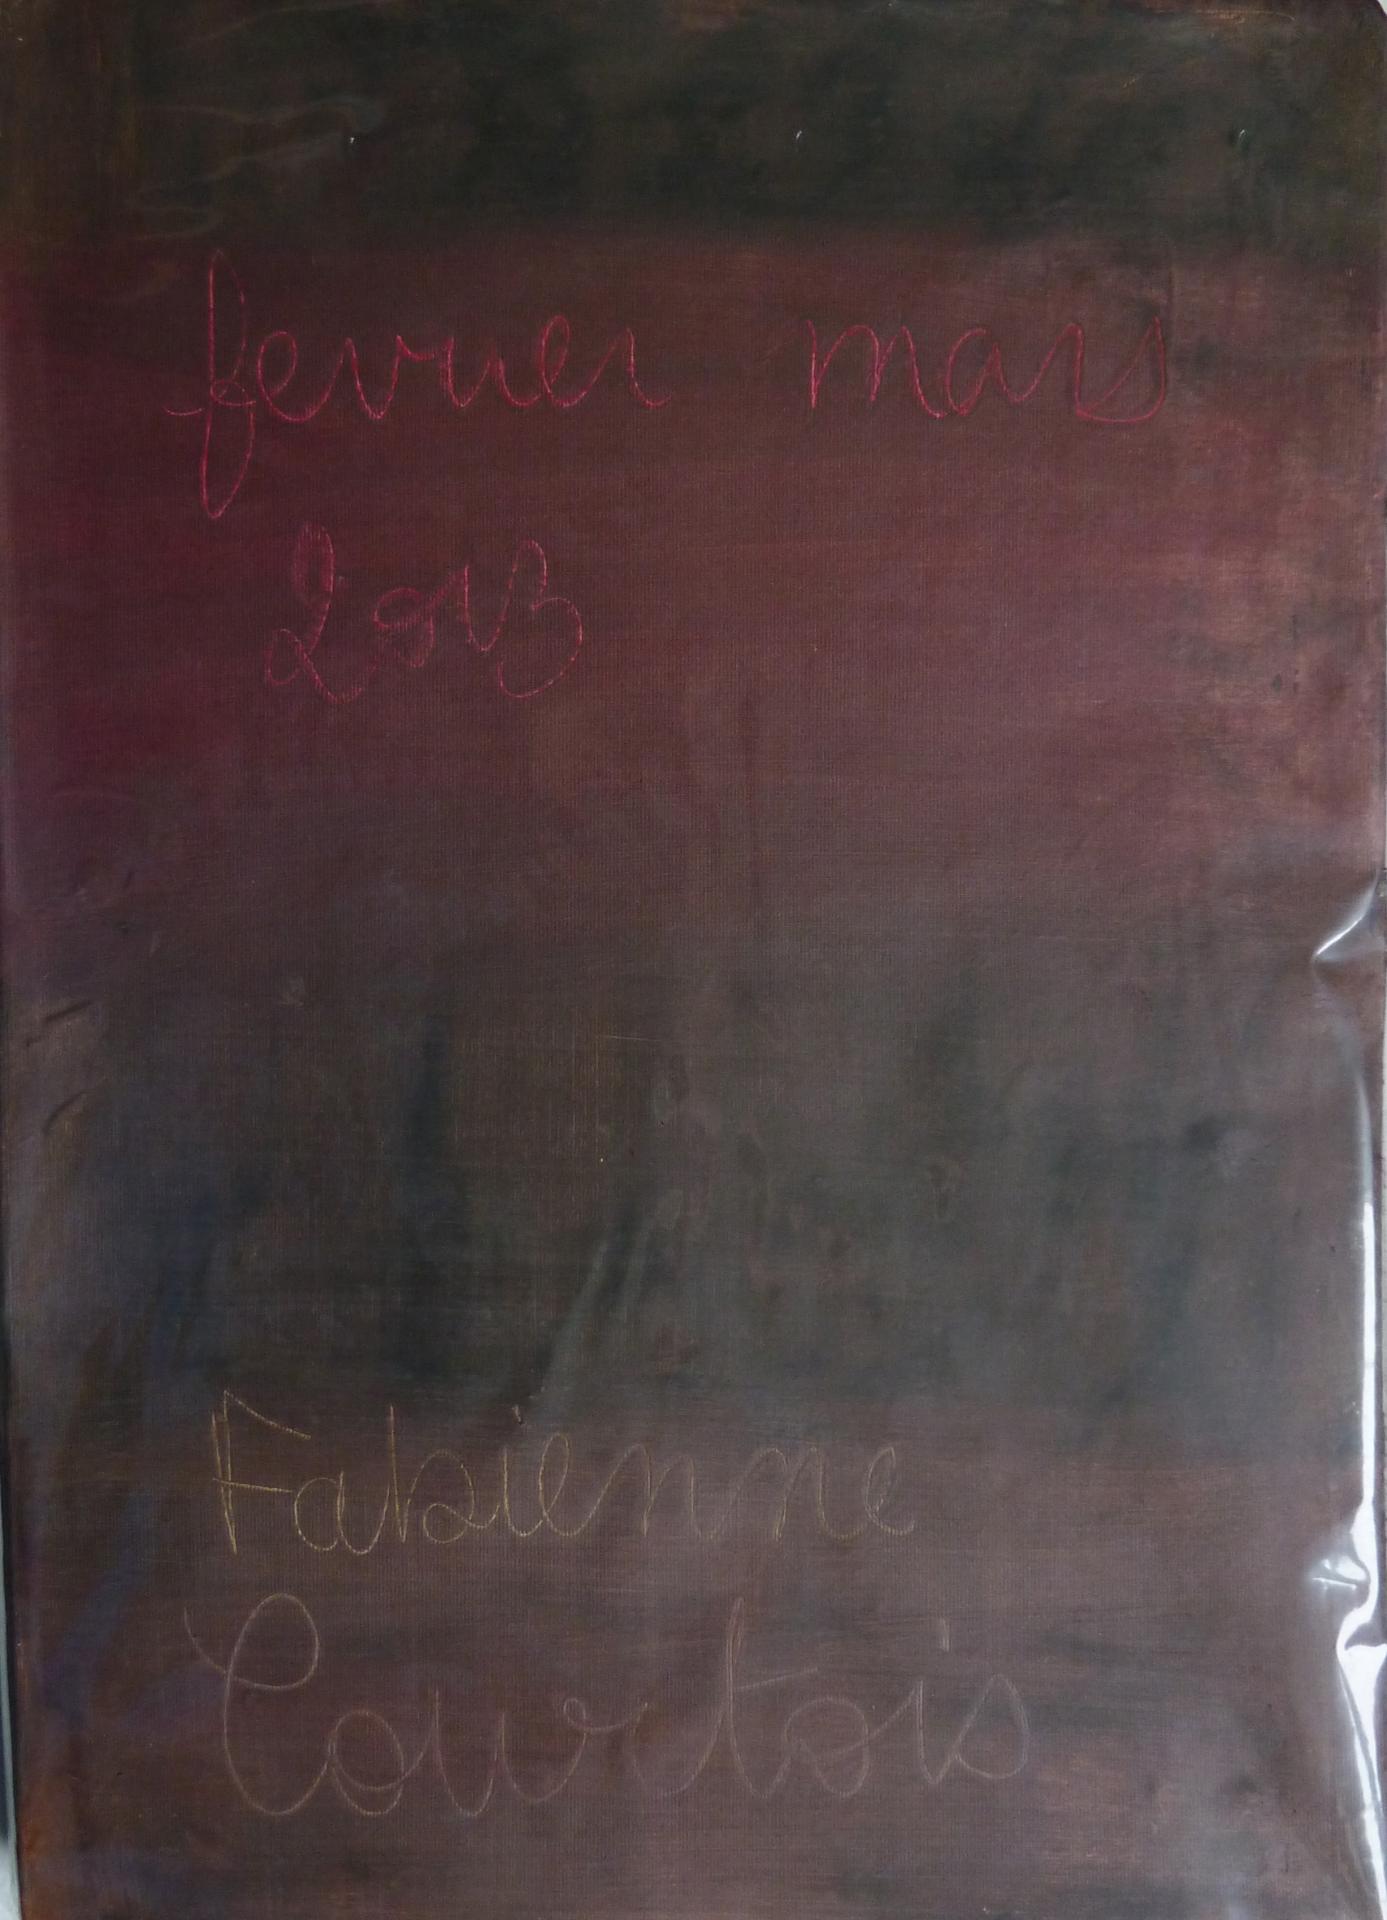 fevrier mars
2013
Fabienne
Courtois